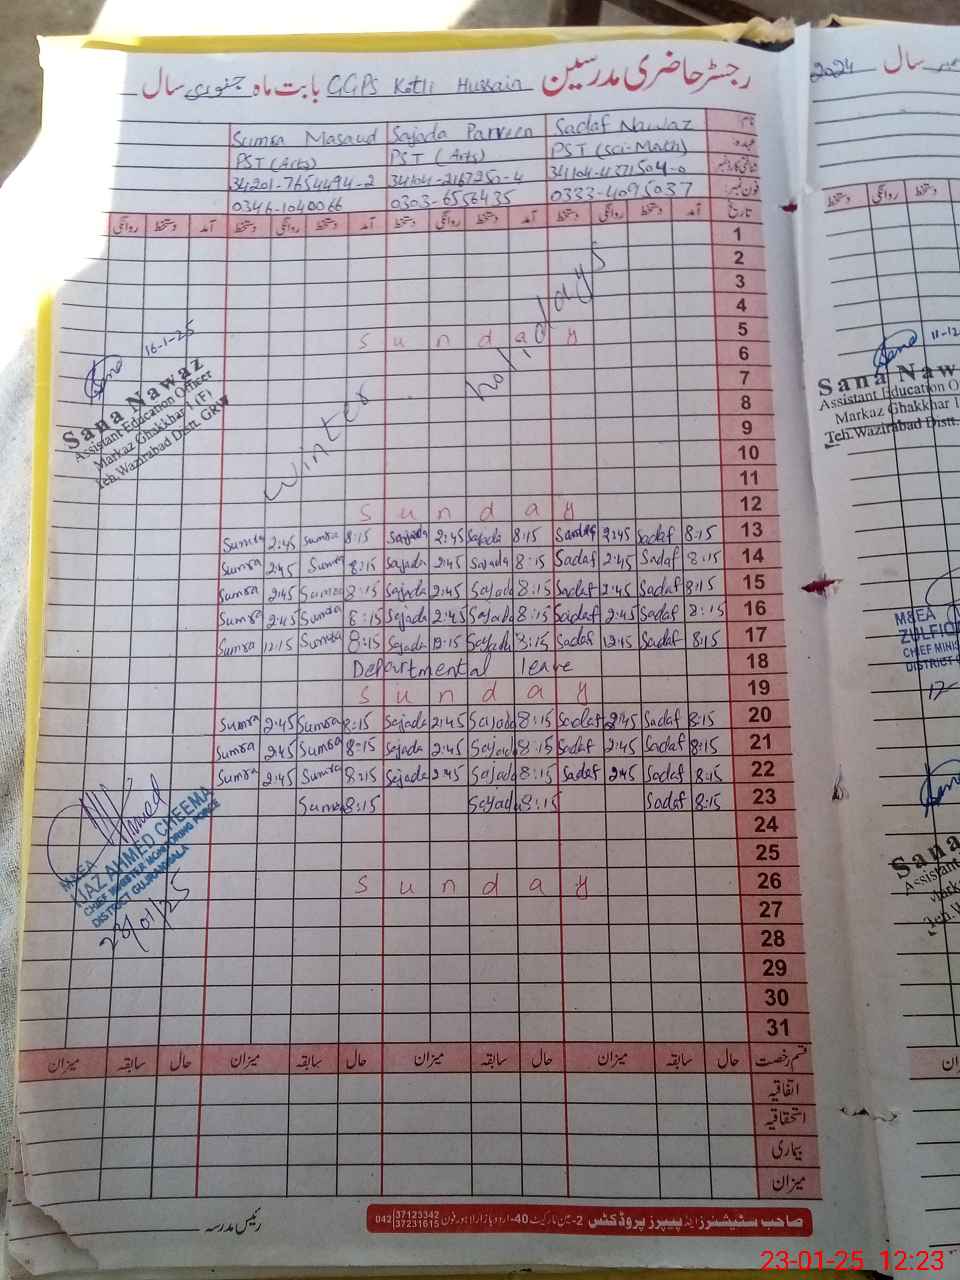 رجسٹر حاضری مدرسین GGPS Kotli Hussain بابت ماہ جنوری سال
نام Sadaf Nawaz Sajada Parveen Sumra Masaud
عہدہ PST (Sci-Math) PST (Arts) PST (Arts)
شناختی کارڈ نمبر 34201-7654494-2
فون نمبر 0333-4095037 0303-6556435 0346-1040066
تاریخ آمد دستخط روانگی دستخط آمد دستخط روانگی دستخط آمد دستخط روانگی دستخط آمد دستخط روانگی
1
2
3
4
5 Sunday
6
7
8
9
10
11
12 Sunday
winter holidays
13 8:15 Sadaf 2:45 Sadaf 8:15 Sajada 2:45 Sajada 8:15 Sumra 2:45 Sumra
14 8:15 Sadaf 2:45 Sadaf 8:15 Sajada 2:45 Sajada 8:15 Sumra 2:45 Sumra
15 8:15 Sadaf 2:45 Sadaf 8:15 Sajada 2:45 Sajada 8:15 Sumra 2:45 Sumra
16 8:15 Sadaf 2:45 Sadaf 8:15 Sajada 2:45 Sajada 8:15 Sumra 2:45 Sumra
17 8:15 Sadaf 12:45 Sadaf 8:15 Sajada 12:15 Sajada 8:15 Sumra 12:15 Sumra
18 Departmental leave
19 Sunday
20 8:15 Sadaf 2:45 Sadaf 8:15 Sajada 2:45 Sajada 8:15 Sumra 2:45 Sumra
21 8:15 Sadaf 2:45 Sadaf 8:15 Sajada 2:45 Sajada 8:15 Sumra 2:45 Sumra
22 8:15 Sadaf 2:45 Sadaf 8:15 Sajada 2:45 Sajada 8:15 Sumra 2:45 Sumra
23 8:15 Sadaf 8:15 Sajada 8:15 Sumra
24
25
26 Sunday
27
28
29
30
31
قسم رخصت حال سابقہ میزان حال سابقہ میزان حال سابقہ میزان حال سابقہ میزان
اتفاقیہ
استحقاقیہ
بیماری
میزان
رئیس مدرسہ
صاحب سٹیشنرز اینڈ پیپرز پروڈکٹس 2-مین مارکیٹ 40-اردو بازار لاہور فون 042
37123342
37231615
Sana 16-1-25
Sana Nawaz
Assistant Education Officer
Markaz Ghakkhar 1 (F)
Teh. Wazirabad Distt. GRW
MEA
IJAZ AHMED CHEEMA
CHIEF MINISTER MONITORING FORCE
DISTRICT GUJRANWALA
23/01/25
سال 2024
دستخط روانگی دستخط
Sana 11-12
Sana Naw
Assistant Education O
Markaz Ghakkhar 1
Teh. Wazirabad Distt.
MEA
ZULFIQ
CHIEF MINIS
DISTRICT G
17-
Sana
Sana
Assistant
Teh. W
23-01-25 12:23